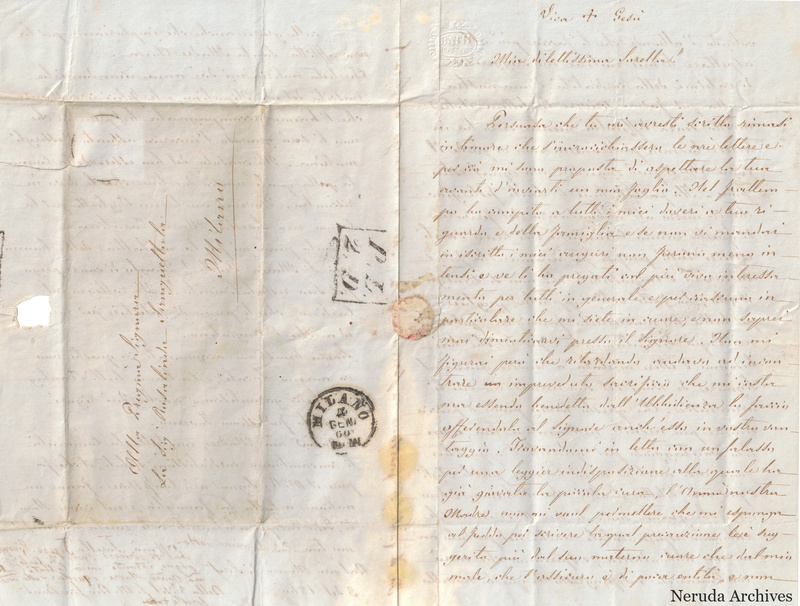 Viva + Gesù
Mia dilettissima Sorella!
Persuasa che tu mi avresti scritto rimasi
in timore che s'incrocichiassero le nre lettere e
per ciò mi sono proposta di aspettare la tua
avanti d'inviarti un mio foglio. Nel frattem-
po ho compito a tutti i miei doveri a tuo ri-
guardo e della famiglia e se non vi mandai
in iscritto i miei augurj non furono meno in-
tesi e ve li ho pregati col più vivo interessa-
mento per tutti in generale e per ciascuno in
particolare che mi siete in cuore, e non saprei
mai dimenticarvi presso il Signore. Non mi
figurai però che ritardando andava ad incon-
trare un impreveduto sacrificio che mi costa
ma essendo benedetto dall'Ubbidienza lo faccio
offerendolo al Signore anch'esso in vostro van-
taggio. Trovandomi in letto con un salasso
per una leggier indisposizione alla quale ha
già giovato la piccola cura, l' nostra
Madre non mi vuol permettere che mi esponga
al freddo per scrivere la qual precauzione le è sug-
gerita più dal suo materno cuore che dal mio
male, che l'assicuro è di poca entità, e non
Alla Pregma Signora
La Sig Rosalinda
Milano
P. L.
2. D.
MILANO
GEN.
60
Neruda Archives